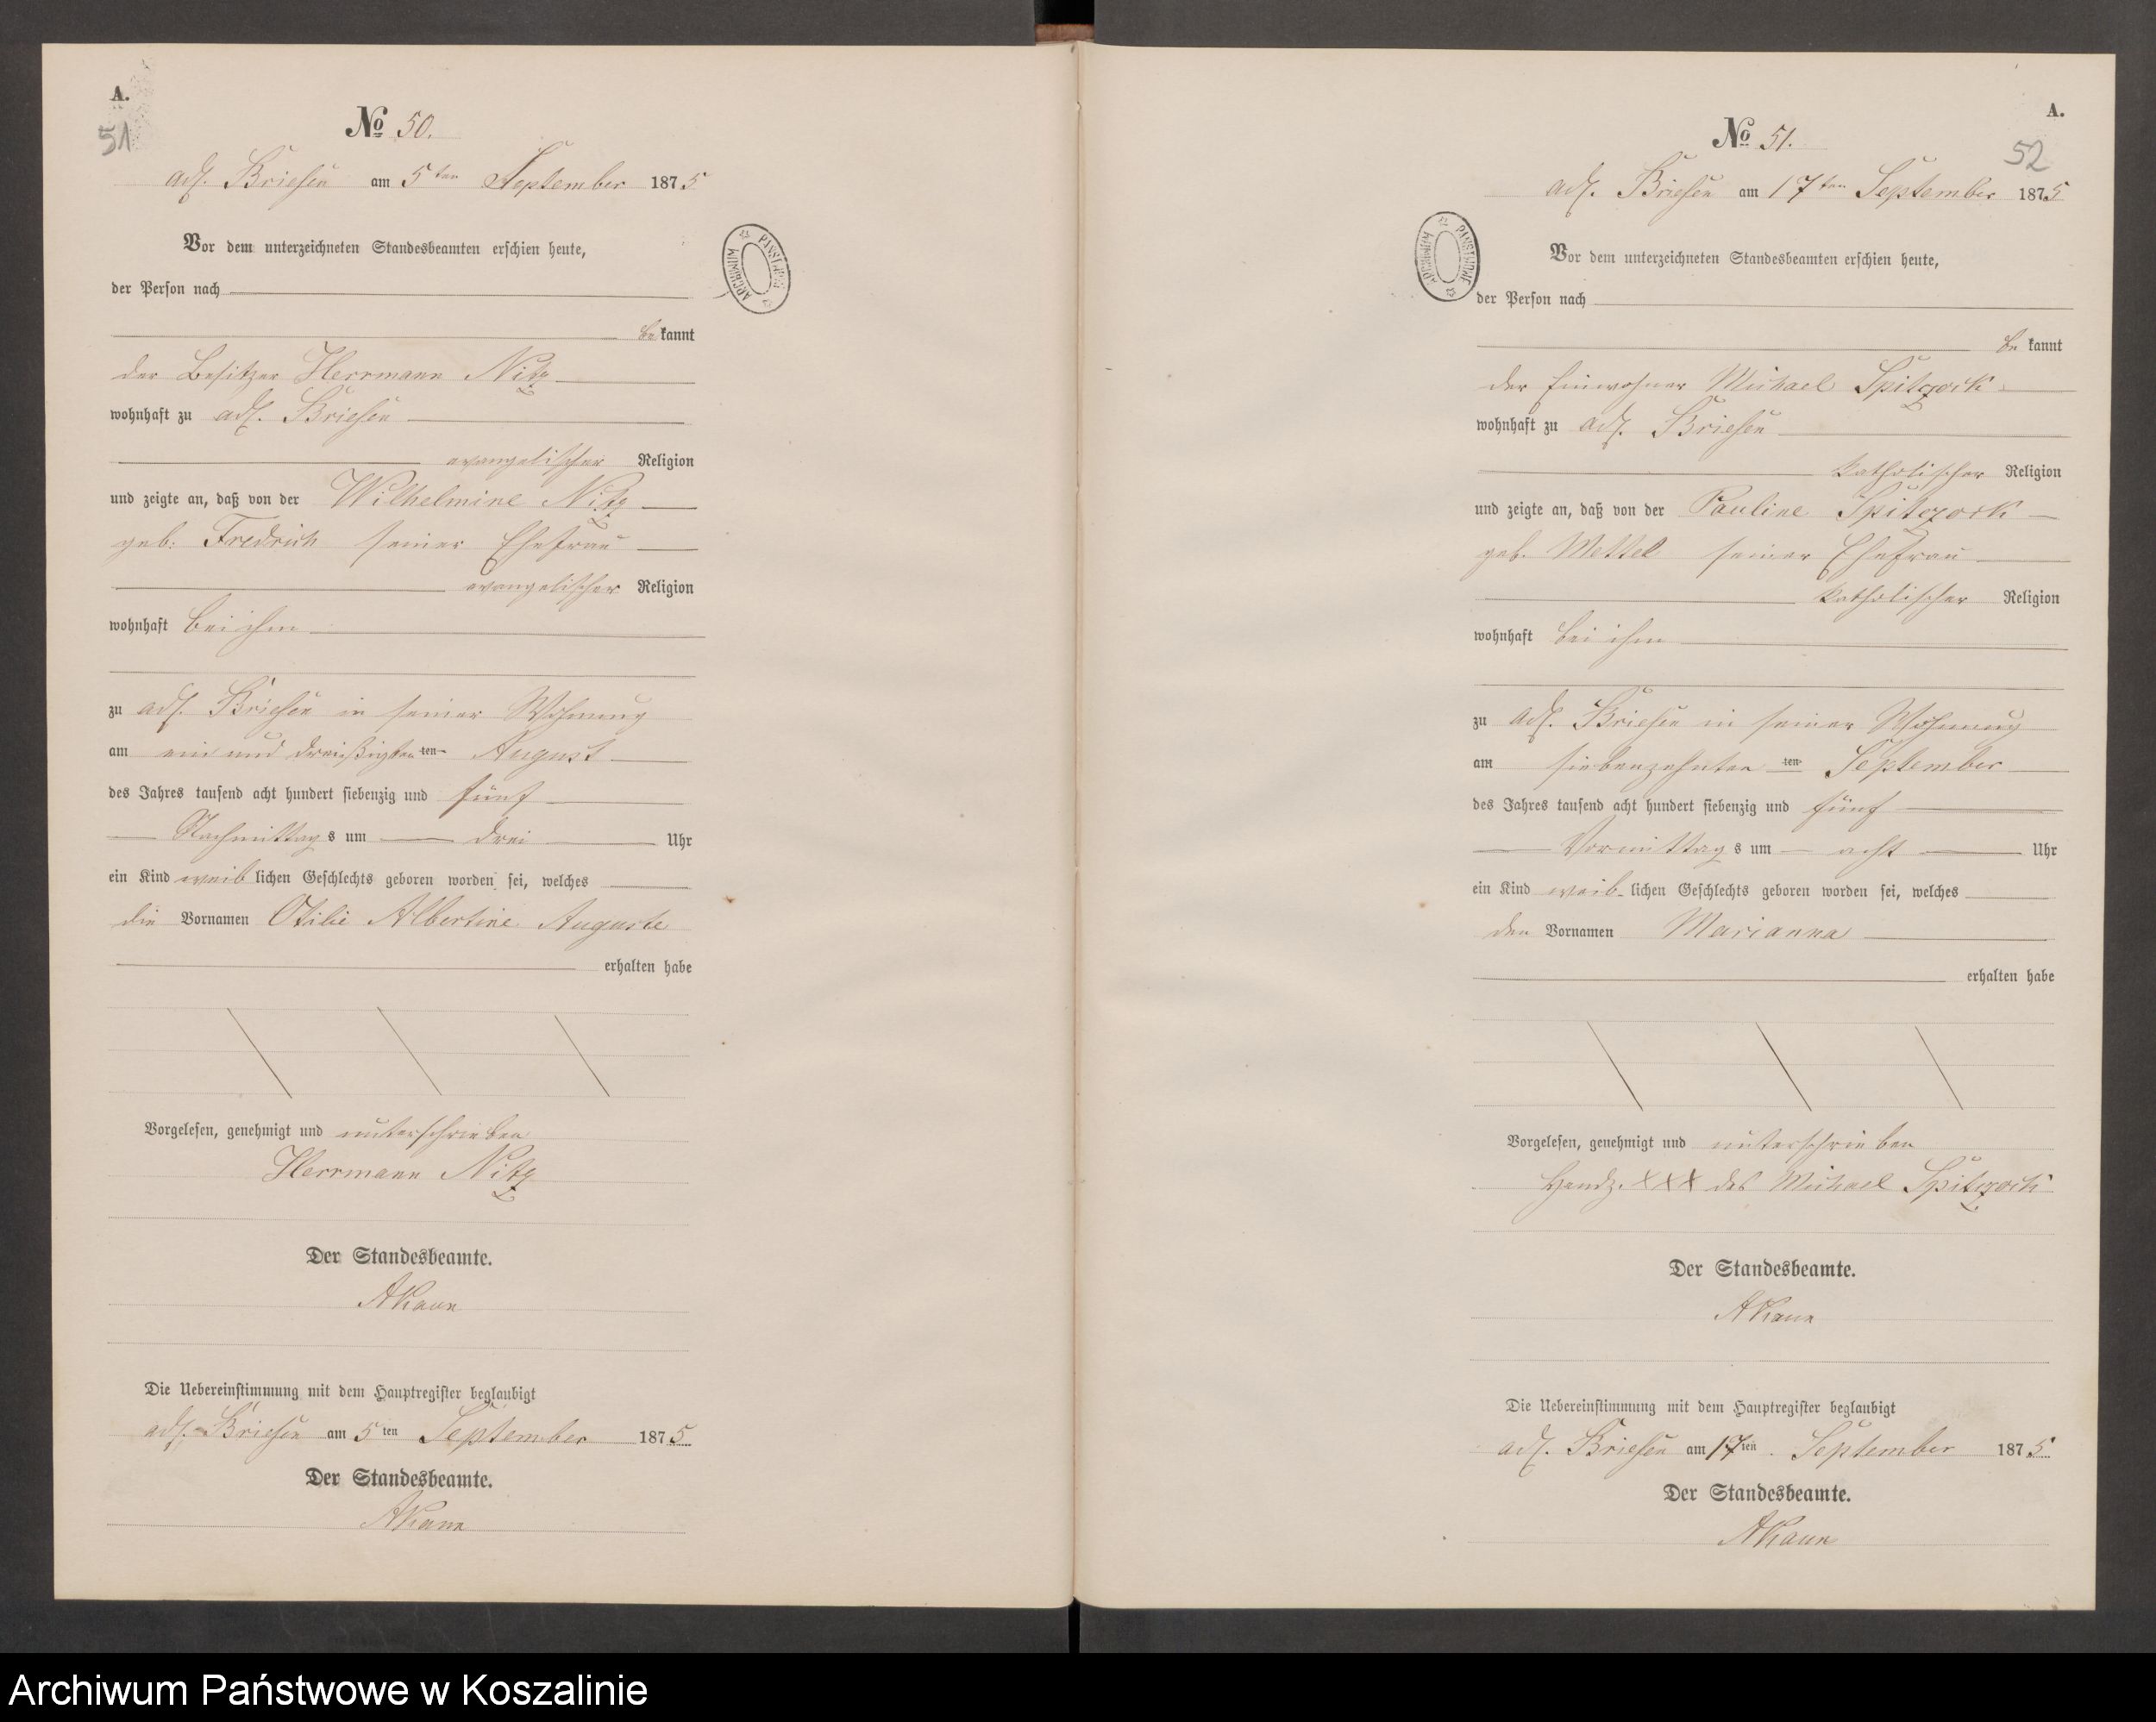 A.
51
No 50.
adl. Briesen am 5ten September 1875
Vor dem unterzeichneten Standesbeamten erschien heute,
der Person nach
bekannt
der Besitzer Herrmann Nitz
wohnhaft zu adl. Briesen
evangelischer Religion
und zeigte an, daß von der Wilhelmine Nitz
geb. Fredrich seiner Ehefrau
evangelischer Religion
wohnhaft bei ihm
zu adl. Briesen in seiner Wohnung
am ein und dreißigsten ten August
des Jahres tausend acht hundert siebenzig und fünf
Nachmittags um drei Uhr
ein Kind weiblichen Geschlechts geboren worden sei, welches
die Vornamen Otilie Albertine Auguste
erhalten habe
Vorgelesen, genehmigt und unterschrieben
Herrmann Nitz
Der Standesbeamte.
AKaun
Die Uebereinstimmung mit dem Hauptregister beglaubigt
adl. Briesen am 5ten September 1875
Der Standesbeamte.
AKaun
ARCHIWUM PAŃSTWOWE
A.
52
No 51.
adl. Briesen am 17ten September 1875
Vor dem unterzeichneten Standesbeamten erschien heute,
der Person nach
bekannt
der Einwohner Michael Spitczock
wohnhaft zu adl. Briesen
katholischer Religion
und zeigte an, daß von der Pauline Spitczock
geb. Mettel seiner Ehefrau
katholischer Religion
wohnhaft bei ihm
zu adl. Briesen in seiner Wohnung
am siebenzehnten ten September
des Jahres tausend acht hundert siebenzig und fünf
Vormittags um acht Uhr
ein Kind weiblichen Geschlechts geboren worden sei, welches
den Vornamen Marianna
erhalten habe
Vorgelesen, genehmigt und unterschrieben
Handz. XXX des Michael Spitczock
Der Standesbeamte.
AKaun
Die Uebereinstimmung mit dem Hauptregister beglaubigt
adl. Briesen am 17ten September 1875
Der Standesbeamte.
AKaun
ARCHIWUM PAŃSTWOWE
Archiwum Państwowe w Koszalinie